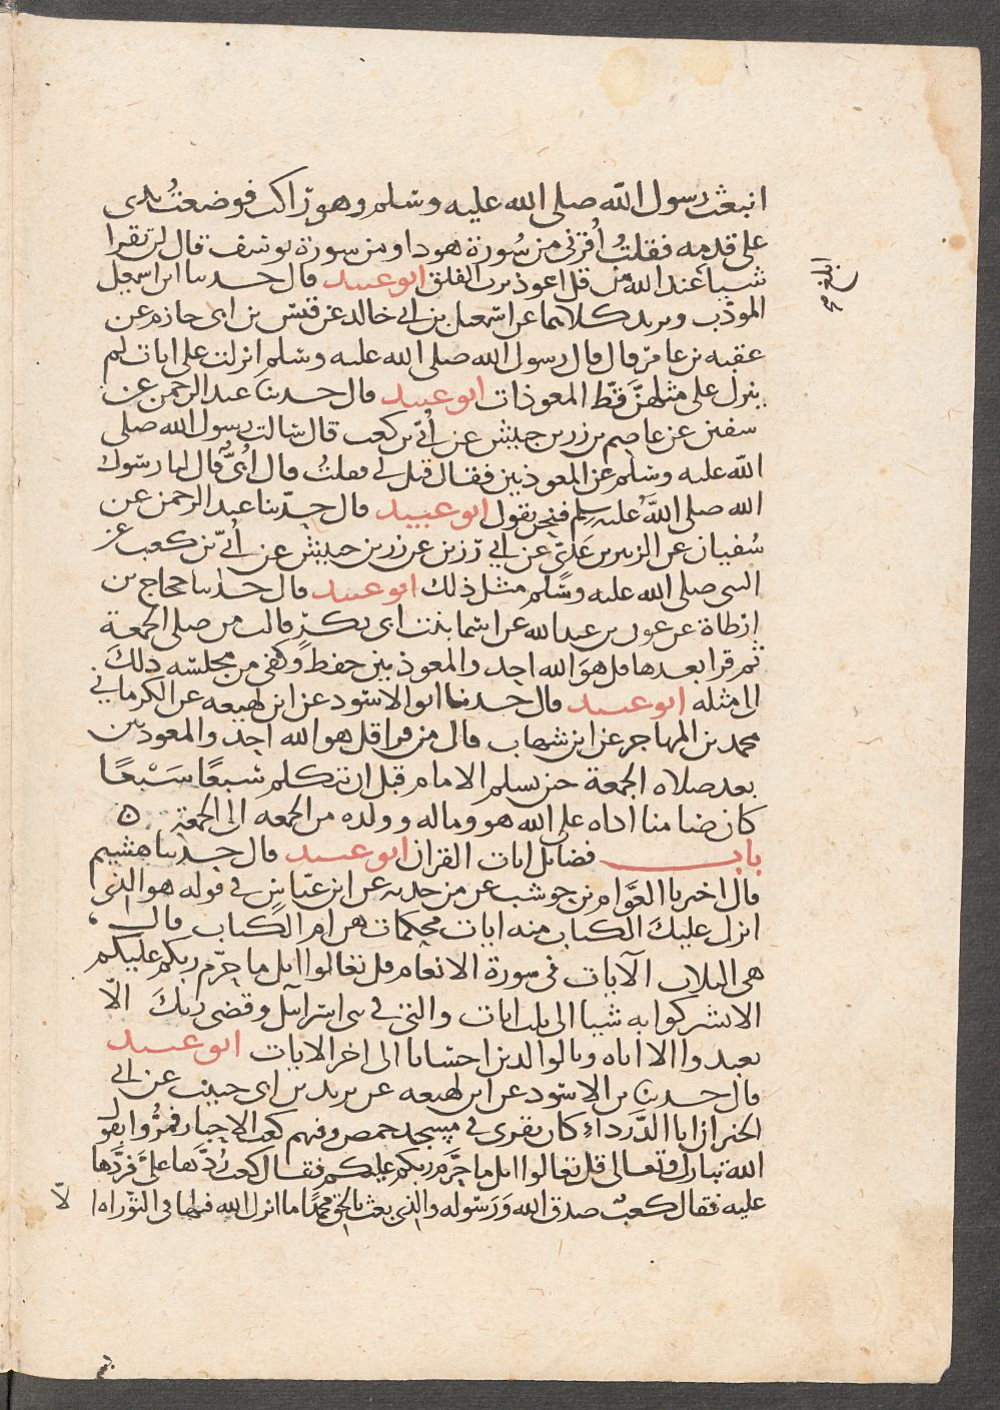 اتبعت رسول الله صلى الله عليه وسلم وهو راكب فوضعت يدى
على قدمه فقلت أقرئنى من سورة هود او من سورة يوسف قال لن تقرا
شيا عند الله من قل اعوذ برب الفلق ابو عبيد قال حدثنا ابو اسمعيل
المؤدب ويزيد كلاهما عن اسمعيل بن ابي خالد عن قيس بن ابى حازم عن
عقبه بن عامر قال قال رسول الله صلى الله عليه وسلم انزلت على ايات لم
ينزل على مثلهن قط المعوذات ابو عبيد قال حدثنا عبد الرحمن عن
سفين عن عاصم بن زر بن حبيش عن أبي بن كعب قال سالت رسول الله صلى
الله عليه وسلم عن المعوذتين فقال قيل لي فقلت قال أبي قال لنا رسول
الله صلى الله عليه وسلم فنحن نقول ابو عبيد قال حدثنا عبد الرحمن عن
سفيان عن الزبير بن عدي عن ابي رزين عن زر بن حبيش عن أبي بن كعب عن
النبى صلى الله عليه وسلم مثل ذلك ابو عبيد قال حدثنا حجاج بن
ارطاة عن عون بن عبد الله عن اسما بنت ابى بكر قالت من صلى الجمعة
ثم قرا بعدها قل هو الله احد والمعوذتين حفظ وكفى من مجلسه ذلك
الى مثله ابو عبيد قال حدثنا ابو الاسود عن ابن لهيعه عن الكرماني
محمد بن المهاجر عن ابن شهاب قال من قرا قل هو الله احد والمعوذتين
بعد صلاه الجمعة حين يسلم الامام قبل ان يتكلم سبعا سبعا
كان ضامنا اداه على الله هو وماله وولده من الجمعه الى الجمعة ۵
باب فضايل ايات القران ابو عبيد قال حدثنا هشيم
قال اخبرنا العوام بن حوشب عن من حدثه عن ابن عباس في قوله هو الذى
انزل عليك الكتاب منه ايات محكمات هن ام الكتاب قال
هى الثلاث الآيات فى سورة الانعام قل تعالوا اتل ما حرم ربكم عليكم
الا تشركوا به شيا الى ثلث ايات والتى في بنى اسرائيل وقضى ربك الا
تعبدوا الا اياه وبالوالدين احسانا الى اخر الايات ابو عبيد
قال حدثنا بن الاسود عن ابن لهيعه عن يزيد بن ابى حبيب عن ابي
الخير ان ابا الدرداء كان يقرى في مسجد حمص وفيهم كعب الاحبار فمروا بقول
الله تبارك وتعالى قل تعالوا اتل ما حرم ربكم عليكم فقال كعب ردها على فردها
عليه فقال كعب صدق الله ورسوله والذى بعث بالحق محمدا ما انزل الله فيها فى التوراه ا لا